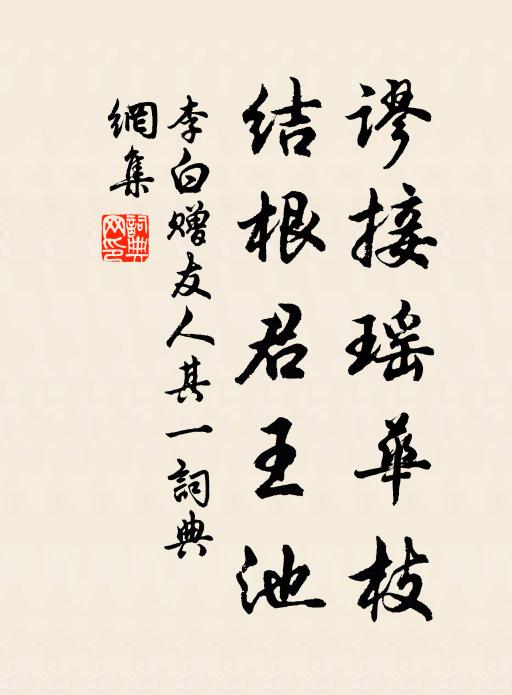 谬接瑶华枝
结根君王池
李白赠友人其一詞典
網集
詞典
网印